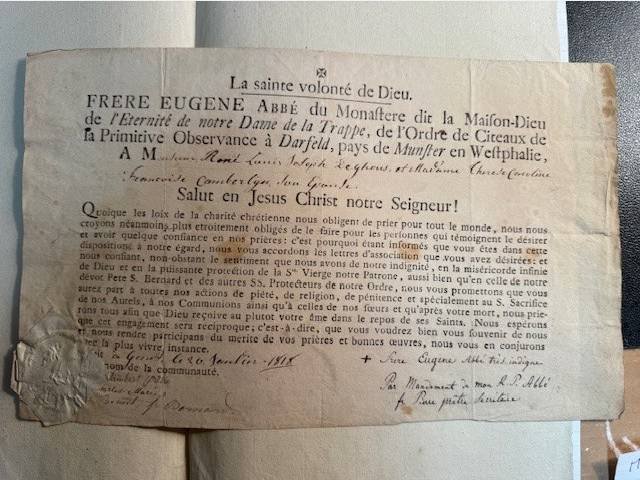 La sainte volonté de Dieu.
FRERE EUGENE ABBÉ du Monastere dit la Maison-Dieu
de l'Eternité de notre Dame de la Trappe, de l'Ordre de Citeaux de
la Primitive Observance à Darfeld, pays de Munster en Westphalie,
A Monsieur René Louis Joseph et Madame Therese Caroline
Françoise son Epouse
Salut en Jesus Christ notre Seigneur!
Quoique les loix de la charité chrétienne nous obligent de prier pour tout le monde, nous nous
croyons néanmoins plus etroitement obligés de le faire pour les personnes qui témoignent le désirer
et avoir quelque confiance en nos prières: c'est pourquoi étant informés que vous êtes dans cette
disposition à notre égard, nous vous accordons les lettres d'association que vous avez désirées: et
nous confiant, non-obstant le sentiment que nous avons de notre indignité, en la miséricorde infinie
de Dieu et en la puissante protection de la Ste Vierge notre Patrone, aussi bien qu'en celle de notre
dévot Pere S. Bernard et des autres SS. Protecteurs de notre Ordre, nous vous promettons que vous
aurez part à toutes nos actions de piété, de religion, de pénitence et spécialement au S. Sacrifice
de nos Autels, à nos Communions ainsi qu'à celles de nos sœurs et qu'après votre mort, nous prie-
rons tous afin que Dieu reçoive au plutot votre âme dans le repos de ses Saints. (Nous espérons
que cet engagement sera réciproque; c'est-à-dire, que vous voudrez bien vous souvenir de nous
et nous rendre participans du merite de vos prières et bonnes œuvres, nous vous en conjurons
avec la plus vive instance.
+ frere Eugene Abbé très indigne
nom de la communauté.
Par Mandement de mon R. P. Abbé
f. Pierre prêtre Secretaire